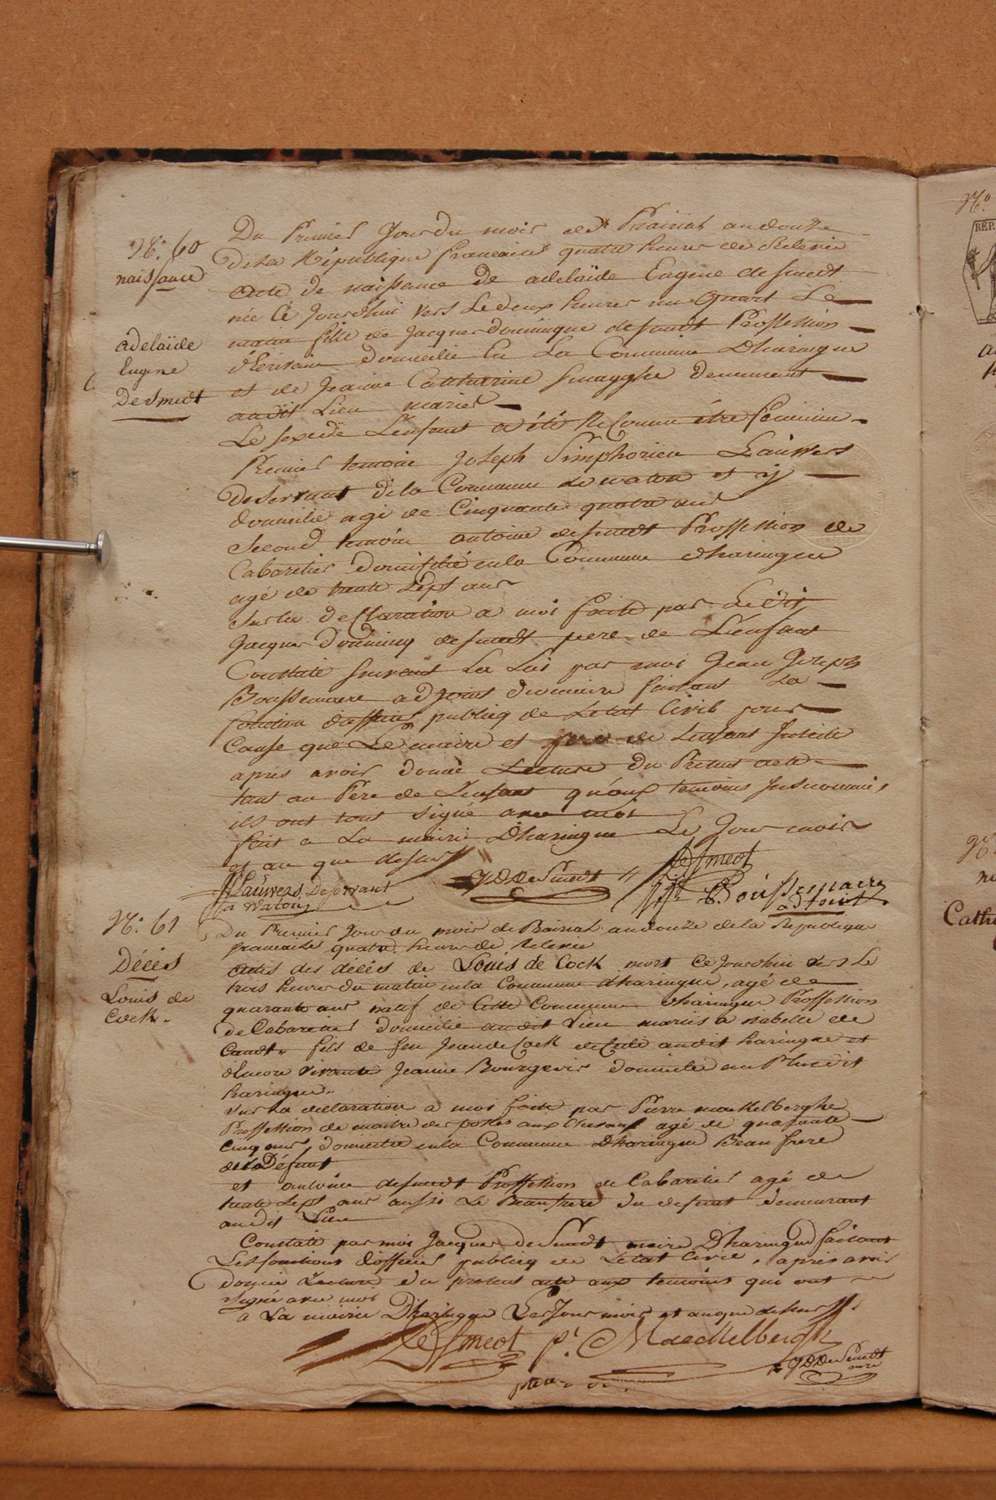 N.º 60
naissance
adelaïde
Eugene
De Smedt
Du Premier Jour du mois de Prairial an douze
de la République francaise quatre heures de Relevée
acte de naissance de adelaïde Eugene de smedt
née Ce Jourdhui vers Le deux heures un quart Le
matin fille de Jacques dominique de smedt Proffession
domicilie En La Commune Dharingue
et de Jeanne Catherine Demeurant
audit Lieu mariés
Le sexe de L'enfant a été Reconnu être feminine
Premier temoin Joseph Simphorien Lauwers
Desservant de la Commune de watou et y
domicilie agé de Cinquante quatre ans
Second temoin antoine de smedt Proffession de
Cabaretier domicilié en la Commune dharingue
agé de trente sept ans
Sur la declaration a moi faite par Ledit
Jacques Dominiq de smedt pere de L'enfant
Constaté suivant La Loi par moi Jean Joseph
Boussemaere adjoint du maire faisant La
fonction d'officier publiq de Letat Civil pour
Cause que Le maire et de L'enfant
apres avoir donné Lecture Du Present acte
tant au Père de L'enfant qu'aux temoins
ils ont tous signé avec moi
fait a La mairie Dharingue Le Jour mois
et an que dessus
Lauwers Desservant
a Watou
J D De Smedt
De Smedt
Boussemaere
adjoint
N.º 61
Décès
Louis de
Cock
Du Premier Jour du mois de Prairial an douze de la Republique
francaise quatre heures de Relevee
actes des décès de Louis de Cock mort ce Jourdhui Le
trois heures du matin en la Commune d'haringue, agé de
quarante ans natif de Cette Commune Dharingue Proffession
de Cabaretier domicilie audit Lieu mariés a isabelle de
Candt fils de feu Jean de Cock decedé audit haringue et
Encore vivante Jeanne Bourgeois domicilie au Plusdit
haringue
Sur La declaration a moi faite par Pierre maekelberghe
Proffession de maitre des postes aux chevaux agé de quarante
cinq ans domicilie en la Commune Dharingue Beau frere
de la Défunt
et antoine de smedt Proffession de Cabaretier agé de
trente sept ans aussi Le Beaufrere du defunt demeurant
audit Lieu
Constaté par moi Jacques de Smedt maire Dharingue faisant
Les fonctions d'officier publiq de Letat Civil, apres avoir
donné Lecture du present acte aux temoins qui ont
signé avec moi
a La mairie Dharingue Les Jour mois et an que dessus
De Smedt
p.r Maeckelbergh
J D De Smedt
maire